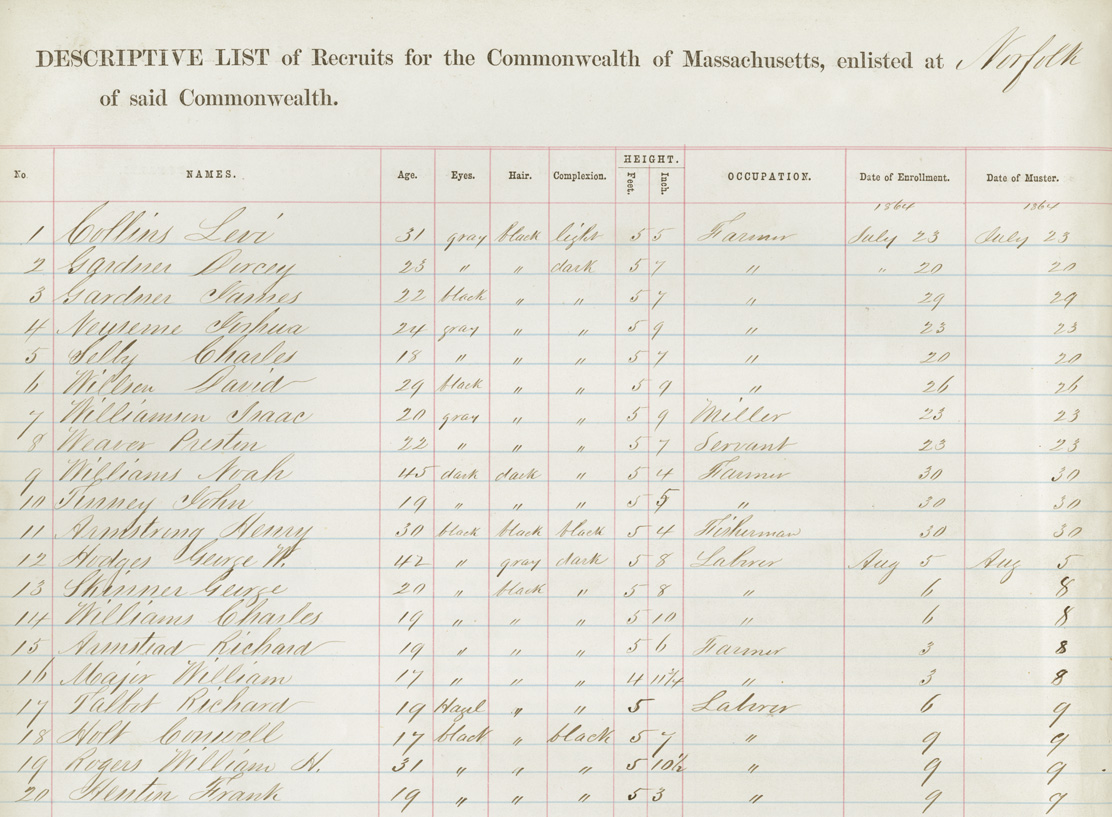 DESCRIPTIVE LIST of Recruits for the Commonwealth of Massachusetts, enlisted at Norfolk
of said Commonwealth.
No. NAMES. Age. Eyes. Hair. Complexion. HEIGHT. Feet. Inch. OCCUPATION. Date of Enrollment. Date of Muster.
1864 1864
1 Collins Levi 31 gray black light 5 5 Farmer July 23 July 23
2 Gardner Dorcey 23 " " dark 5 7 " " 20 20
3 Gardner James 22 black " " 5 7 " 29 29
4 Joshua 24 gray " " 5 9 " 23 23
5 Selby Charles 18 " " " 5 7 " 20 20
6 Willson David 29 black " " 5 9 " 26 26
7 Williamson Isaac 20 gray " " 5 9 Miller 23 23
8 Weaver Preston 22 " " " 5 7 Servant 23 23
9 Williams Noah 45 dark dark " 5 4 Farmer 30 30
10 Tinney John 19 " " " 5 5 " 30 30
11 Armstrong Henry 30 black black black 5 4 Fisherman 30 30
12 Hodges George W. 42 " gray dark 5 8 Labrer Aug 5 Aug 5
13 Skinner George 20 " black " 5 8 " 6 8
14 Williams Charles 19 " " " 5 10 " 6 8
15 Armstead Richard 19 " " " 5 6 Farmer 3 8
16 Major William 17 " " " 4 11 3/4 " 3 8
17 Talbot Richard 19 Hazel " " 5 Labrer 6 9
18 Holt Conwell 17 black " black 5 7 " 9 9
19 Rogers William H. 31 " " " 5 10 1/2 " 9 9
20 Frank 19 " " " 5 3 " 9 9